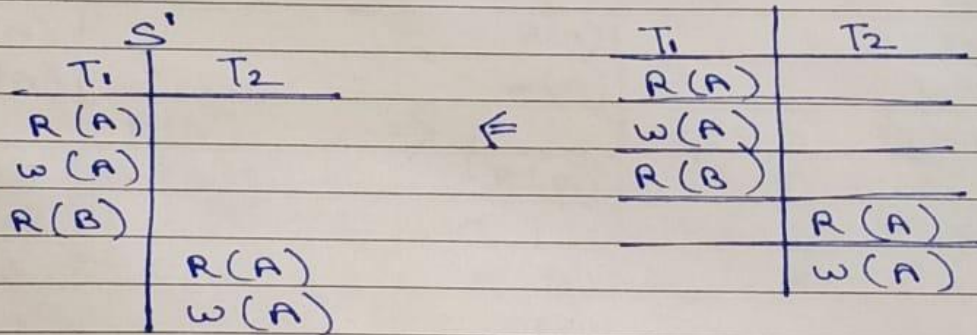 S'
T1 T2
R(A)
W(A)
R(B)
R(A)
W(A)
⇐
T1 T2
R(A)
W(A)
R(B)
R(A)
W(A)